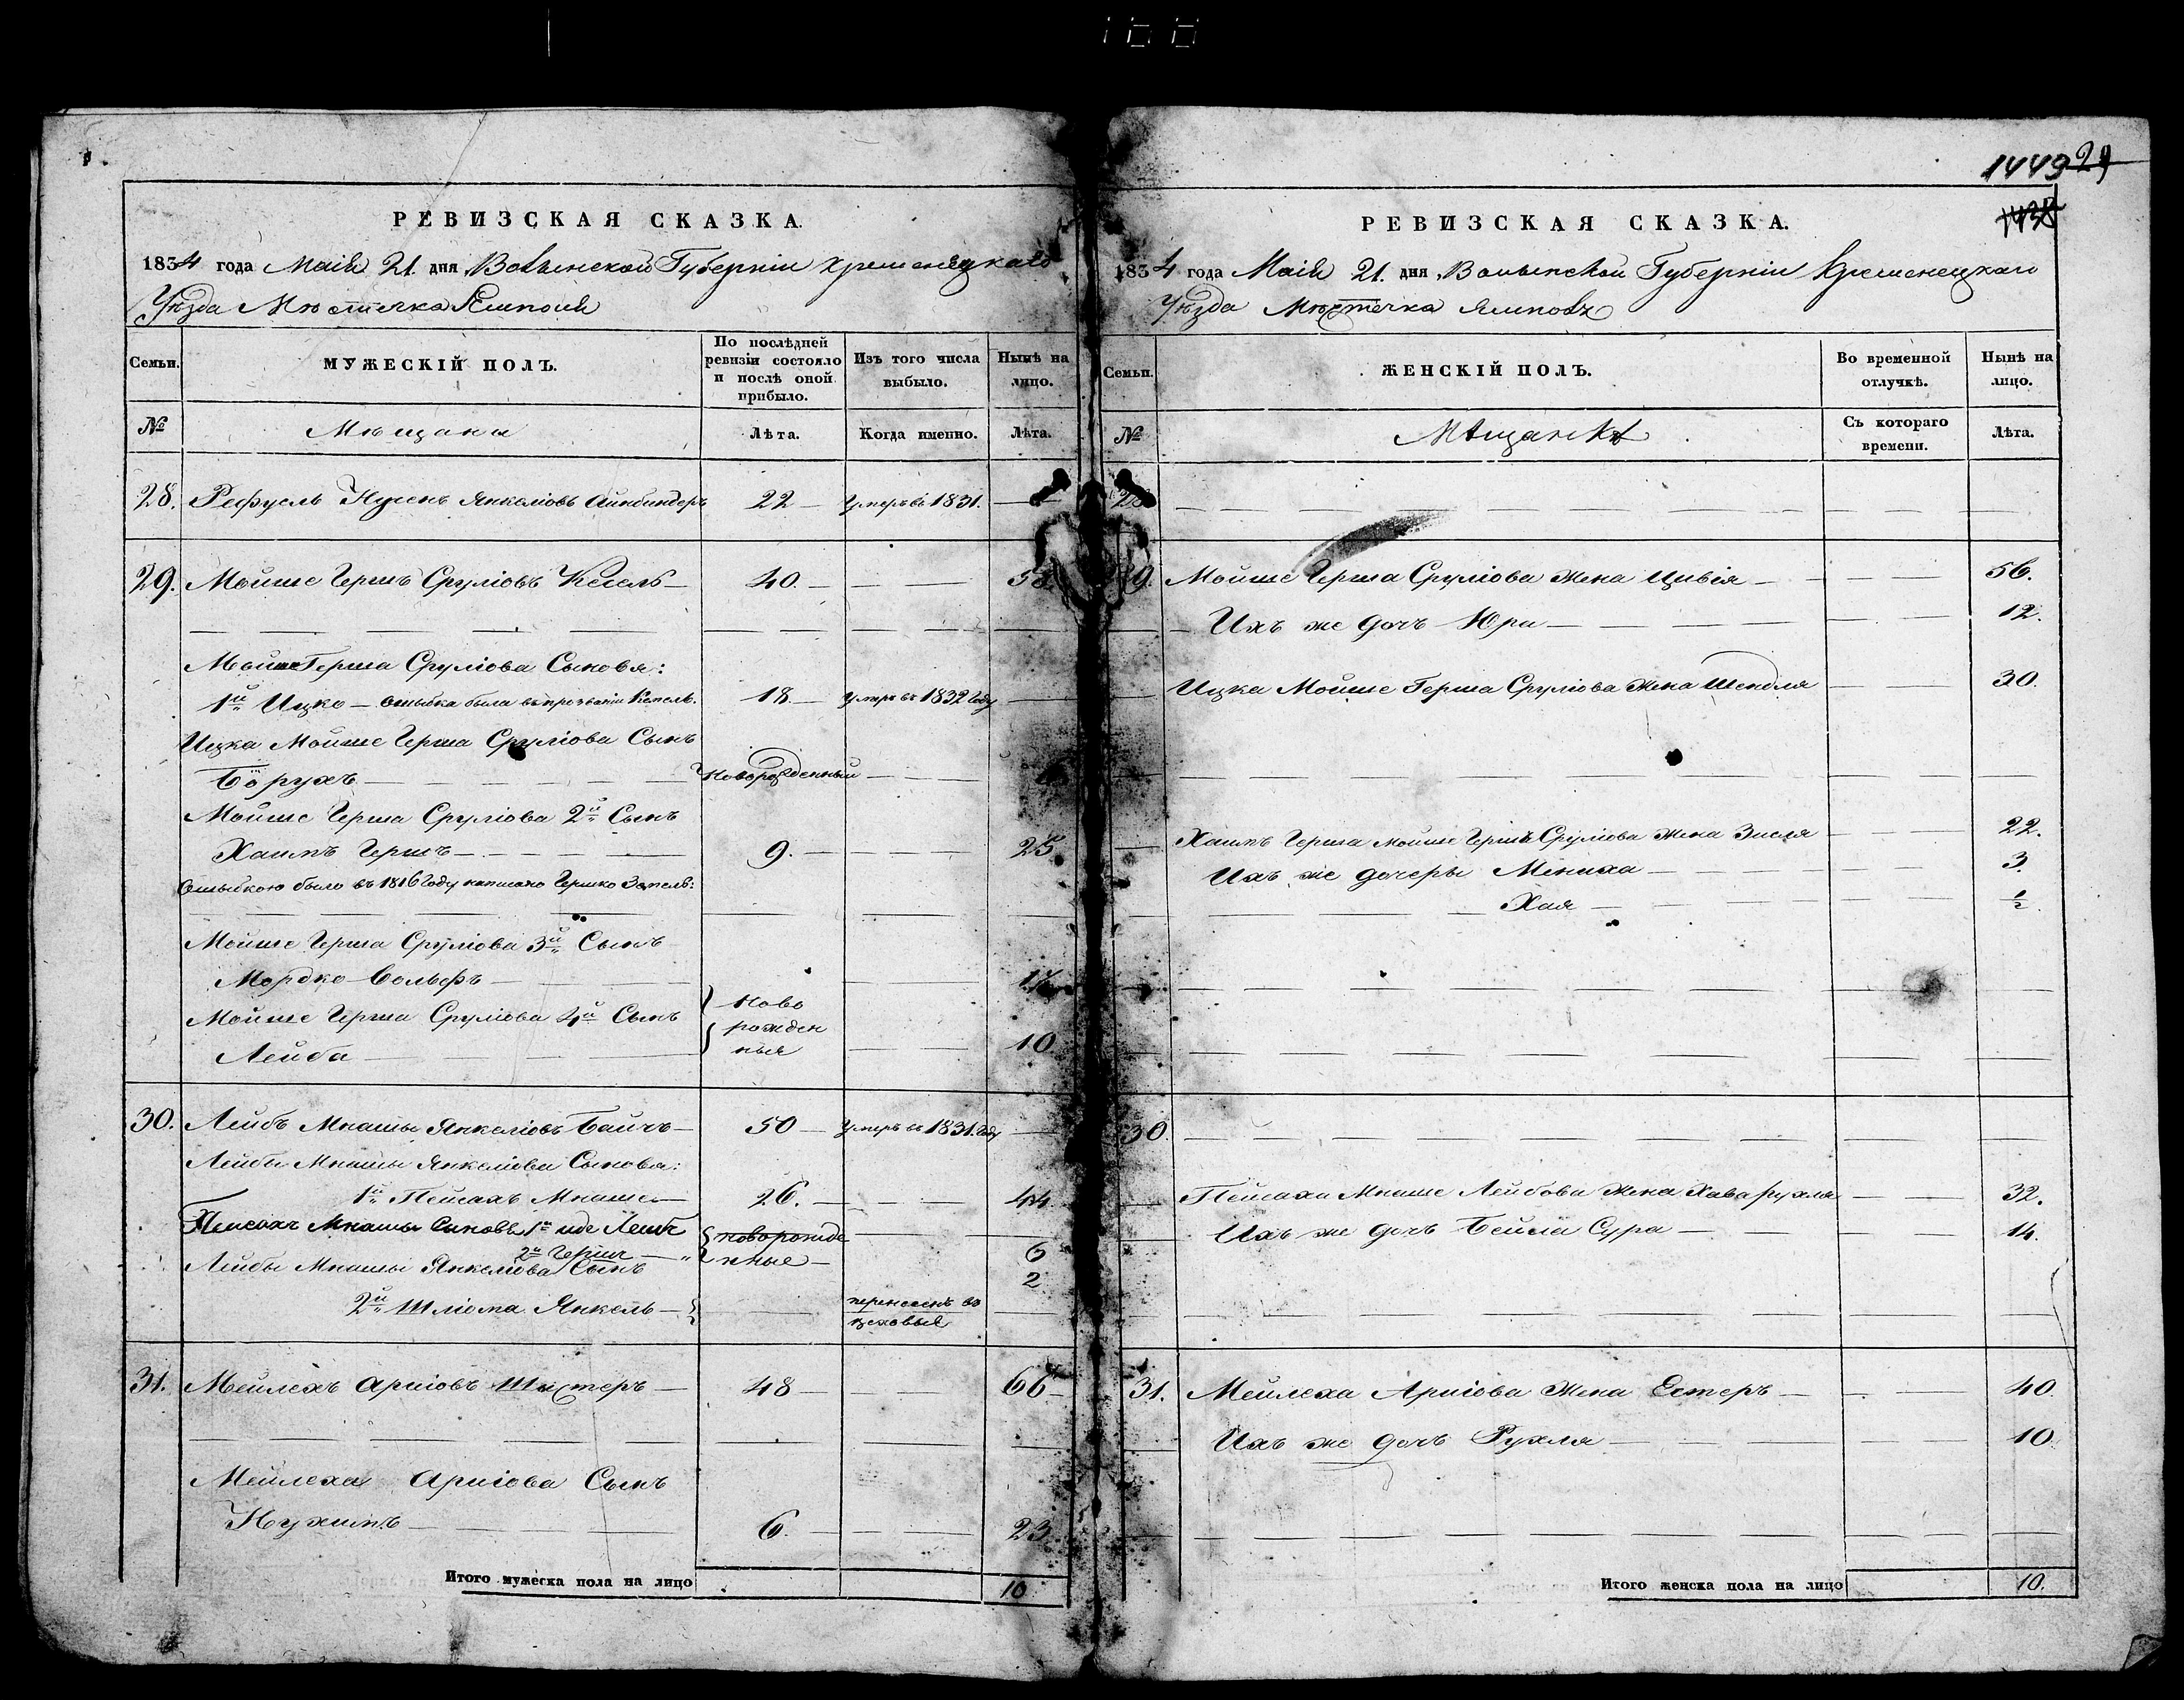 РЕВИЗСКАЯ СКАЗКА.
1834 года Маія 21. дня Волынской Губерніи Кременецкаго
Уѣзда Мѣстечка Ямполя
Семьи.
МУЖЕСКІЙ ПОЛЪ.
По послѣдней ревизіи состояло и послѣ оной прибыло.
Изъ того числа выбыло.
Нынѣ на лицо.
№
Мѣщане
Лѣта.
Когда именно.
Лѣта.
28. Рефуель Нусенъ Янкеліовъ Айнбиндеръ 22 Умеръ въ 1831.
29. Мойше Гершъ Сруліовъ Кесель 40 58
Мойше Герша Сруліова Сыновя:
1й Ицко – ошыбка была въ прозваніи Кепель. 18. Умеръ въ 1832 Году
Ицка Мойше Герша Сруліова Сынъ
Борухъ Новорожденный
Мойше Герша Сруліова 2й Сынъ
Хаимъ Гершъ 9. 25
Ошыбкою было въ 1816 Году написано Гершко Зепель:
Мойше Герша Сруліова 3й Сынъ
Мордко Вольфъ 17
Мойше Герша Сруліова 4й Сынъ
Лейба 10
Ново
рожден
ныя
30. Лейбъ Мнашы Янкеліовъ Байчъ 50 Умеръ въ 1831 Году
Лейбы Мнашы Янкеліова Сыновя:
1й Пейсахъ Мнаше 26. 44
Пейсахъ Мнашы Сыновья 1й Иде Лейбъ новорожде 6
2й Гершъ нные 2
Лейбы Мнашы Янкеліова Сынъ
2й Шліома Янкель перенесенъ въ
цеховые
31. Мейлехъ Арііовъ Шустеръ 48 66
Мейлеха Арііова Сынъ
Нухимъ 6. 23
Итого мужеска пола на лицо 10
1449 29
РЕВИЗСКАЯ СКАЗКА.
1834 года Маія 21. дня Волынской Губерніи Кременецкаго
Уѣзда Мѣстечка Ямполя
Семьи.
ЖЕНСКІЙ ПОЛЪ.
Во временной отлучкѣ.
Нынѣ на лицо.
№
Мѣщанки
Съ котораго времени.
Лѣта.
28
29. Мойше Герша Сруліова жена Цивія 56.
Ихъ же дочь Юра 12.
Ицка Мойше Герша Сруліова жена Шендля 30.
Хаимъ Герша Мойше Герша Сруліова жена Зисля 22.
Ихъ же дочеры Мениха 3.
Хая ½.
30
Пейсаха Мнаше Лейбова жена Хава Рухля 32.
Ихъ же дочь Бейла Сура 14.
31. Мейлеха Арііова жена Естеръ 40.
Ихъ же дочь Рухля 10.
Итого женска пола на лицо 10.